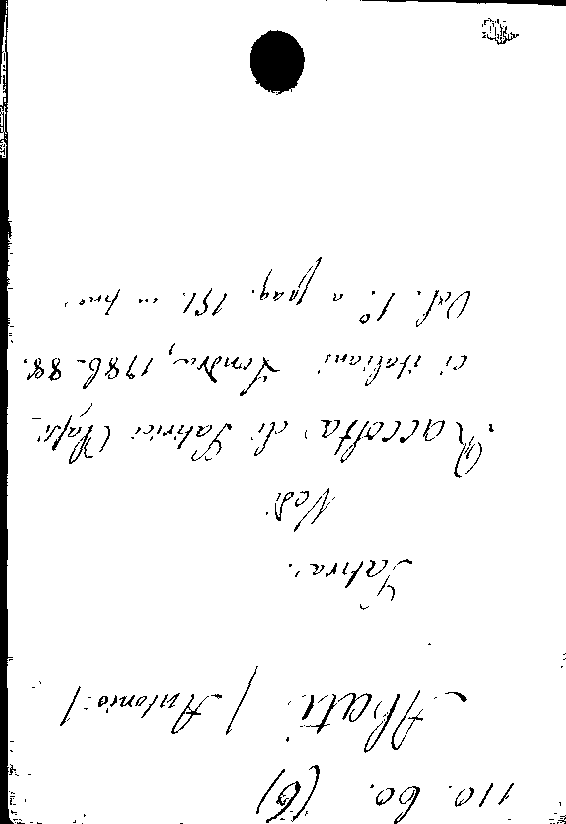 110. 60. (6)
Abati / Antonio /
Satira.
Vedi
Raccolta di Satirici Clafsi-
ci italiani Londra, 1786-88.
Vol. 1.º a pag. 151. in fino